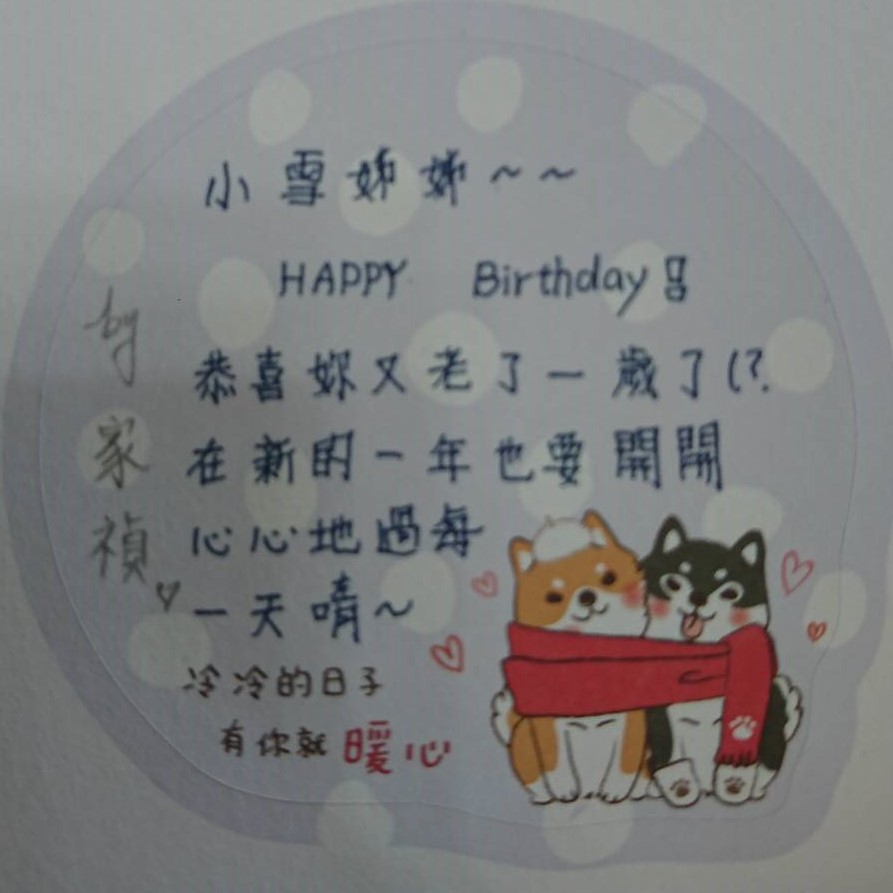 小雪姊姊~~
HAPPY Birthday!!
恭喜妳又老了一歲了(?
在新的一年也要開開
心心地過每
一天唷~
冷冷的日子
有你就暖心
by
家
禎
♡